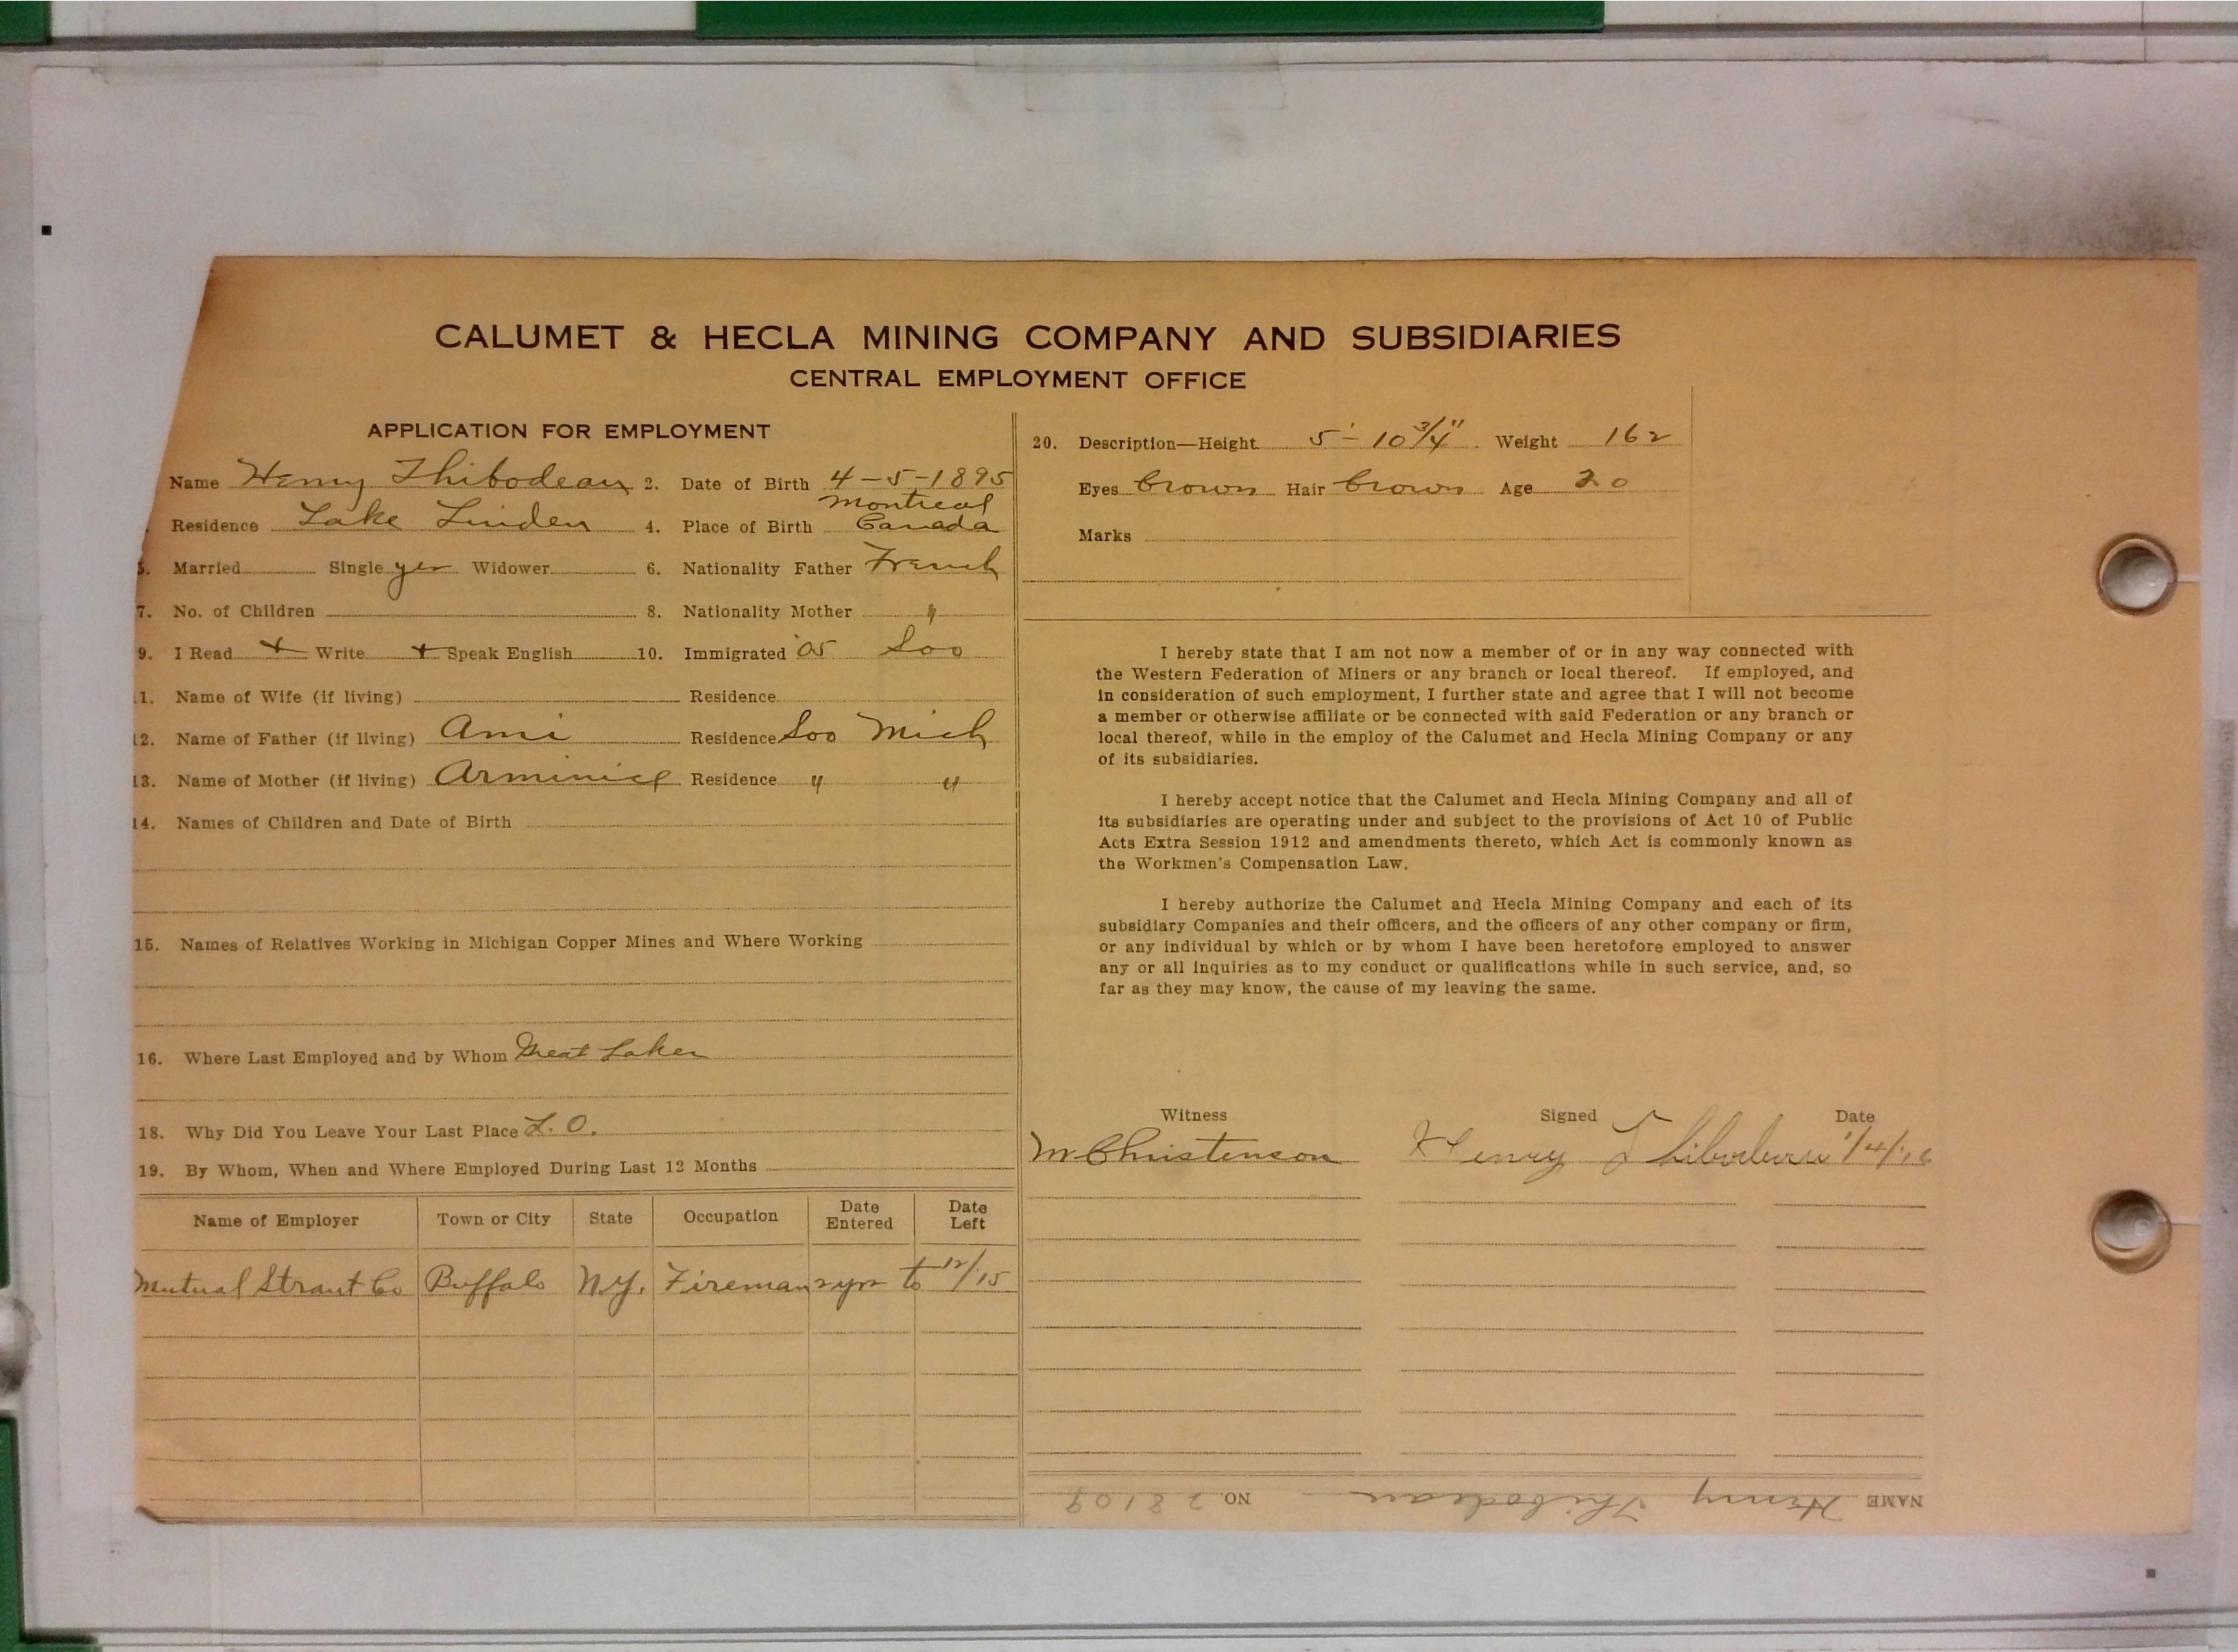 CALUMET & HECLA MINING COMPANY AND SUBSIDIARIES
CENTRAL EMPLOYMENT OFFICE
APPLICATION FOR EMPLOYMENT
Name Henry Thibodeau 2. Date of Birth 4-5-1895
Residence Lake Linden 4. Place of Birth Montreal Canada
5. Married Single yes Widower 6. Nationality Father French
7. No. of Children 8. Nationality Mother "
9. I Read + Write + Speak English 10. Immigrated '05 Soo
11. Name of Wife (if living) Residence
12. Name of Father (if living) Ami Residence Soo Mich
13. Name of Mother (if living) Residence " "
14. Names of Children and Date of Birth
15. Names of Relatives Working in Michigan Copper Mines and Where Working
16. Where Last Employed and by Whom Great Lakes
18. Why Did You Leave Your Last Place L.O.
19. By Whom, When and Where Employed During Last 12 Months
Name of Employer Town or City State Occupation Date Entered Date Left
Mutual Co Buffalo N.Y. Fireman 2 yrs to 12/15
20. Description—Height 5'-10 3/4" Weight 162
Eyes brown Hair brown Age 20
Marks
I hereby state that I am not now a member of or in any way connected with
the Western Federation of Miners or any branch or local thereof. If employed, and
in consideration of such employment, I further state and agree that I will not become
a member or otherwise affiliate or be connected with said Federation or any branch or
local thereof, while in the employ of the Calumet and Hecla Mining Company or any
of its subsidiaries.
I hereby accept notice that the Calumet and Hecla Mining Company and all of
its subsidiaries are operating under and subject to the provisions of Act 10 of Public
Acts Extra Session 1912 and amendments thereto, which Act is commonly known as
the Workmen's Compensation Law.
I hereby authorize the Calumet and Hecla Mining Company and each of its
subsidiary Companies and their officers, and the officers of any other company or firm,
or any individual by which or by whom I have been heretofore employed to answer
any or all inquiries as to my conduct or qualifications while in such service, and, so
far as they may know, the cause of my leaving the same.
Witness Signed Date
M Christenson Henry Thibodeau 1/4/16
NAME Henry Thibodeau NO. 28109